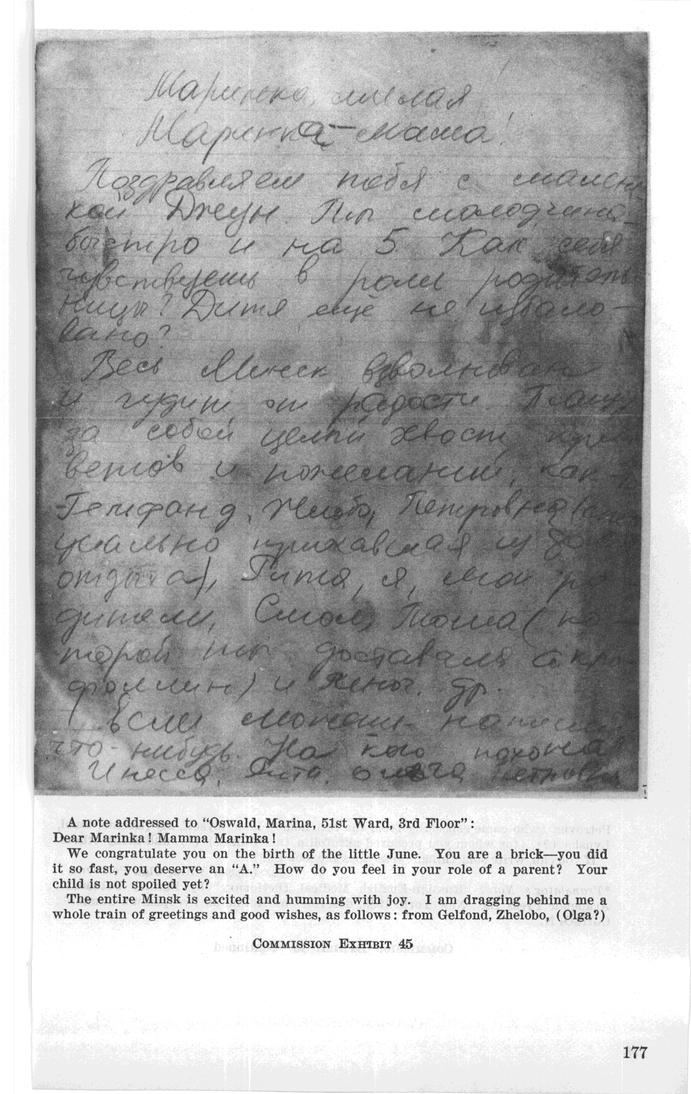 Маринка, милая
Маринка-мама!
Поздравляем тебя с малень
кой Джун. Ты молодчина
быстро и на 5. Как себя
чувствуешь в роли родитель
ницы? Дитя ещё не избало-
вано?
Весь Минск взволнован
и гудит от радости. Тащу
за собой целый хвост
ветов и пожеланий, как
Гельфанд, Петровна
уехавшая из
отдыха), я, мои ро
дители, Тома (ко-
торой ты доставала
) и др.
Если можешь напиши
что-нибудь. На кого похожа
Инесса, Ольга Петровна
A note addressed to "Oswald, Marina, 51st Ward, 3rd Floor":
Dear Marinka! Mamma Marinka!
We congratulate you on the birth of the little June. You are a brick—you did
it so fast, you deserve an "A." How do you feel in your role of a parent? Your
child is not spoiled yet?
The entire Minsk is excited and humming with joy. I am dragging behind me a
whole train of greetings and good wishes, as follows: from Gelfond, Zhelobo, (Olga?)
COMMISSION EXHIBIT 45
177